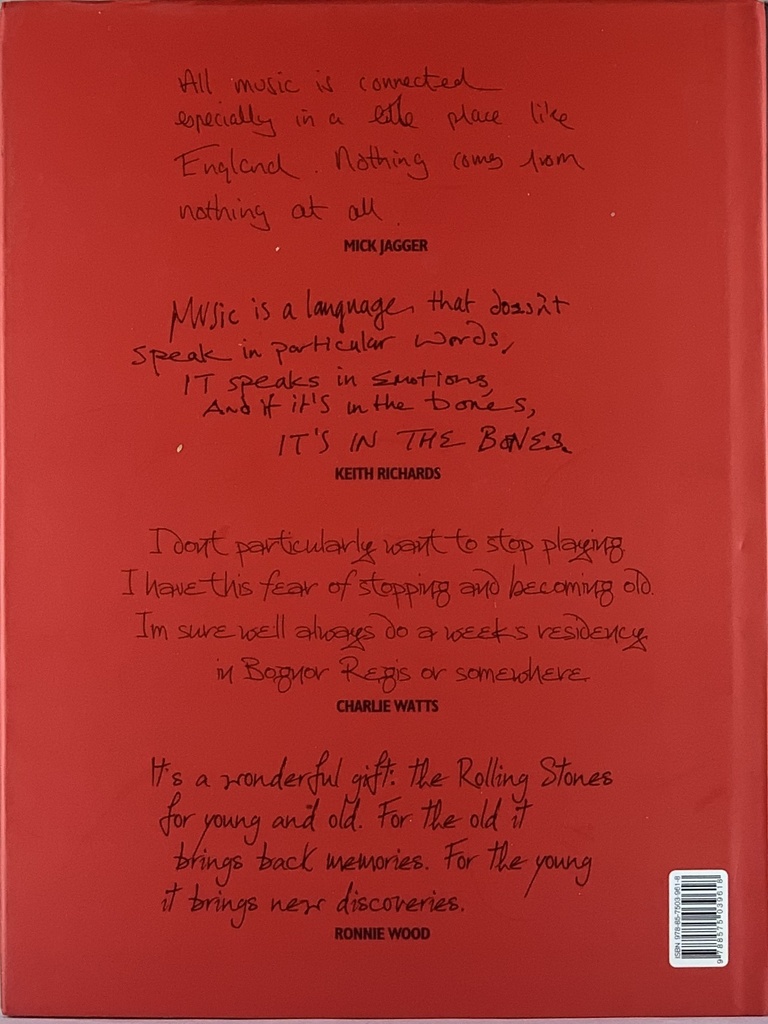 All music is connected
especially in a little place like
England. Nothing comes from
nothing at all.
MICK JAGGER
Music is a language that doesn't
speak in particular words,
IT speaks in Emotions,
And if it's in the bones,
IT'S IN THE BONES.
KEITH RICHARDS
I dont particularly want to stop playing.
I have this fear of stopping and becoming old.
Im sure well always do a weeks residency
in Bognor Regis or somewhere
CHARLIE WATTS
It's a wonderful gift: the Rolling Stones
for young and old. For the old it
brings back memories. For the young
it brings new discoveries.
RONNIE WOOD
ISBN 978-85-7503-961-8
9788575039618